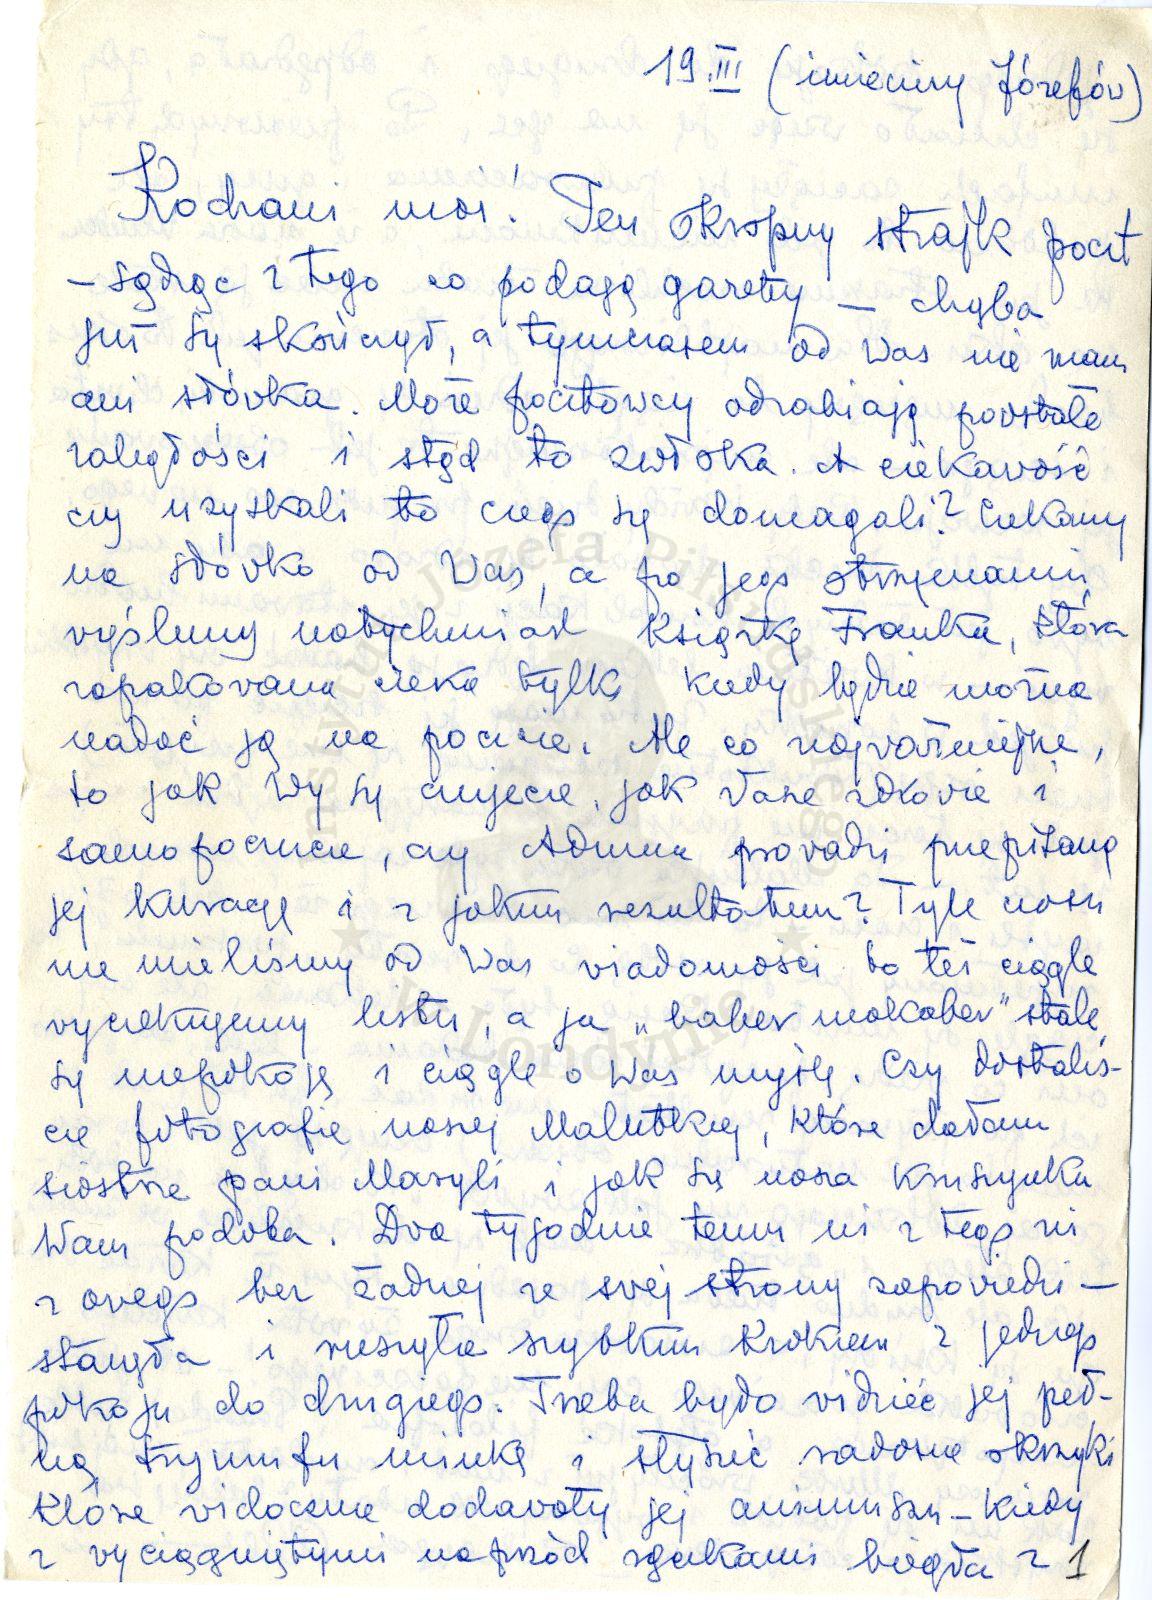 19.III (imieniny Józefów)
Kochani moi! Ten okropny strajk poczt
– sądząc z tego co podają gazety – chyba
już się skończył, a tymczasem od Was nie mam
ani słówka. Może pocztowcy odrabiają powstałe
zaległości i stąd ta zwłoka. A ciekawość
czy uzyskali to czego się domagali? Czekamy
na słówko od Was, a po jego otrzymaniu
wyślemy natychmiast książkę Franka, która
zapakowana czeka tylko kiedy będzie można
nadać ją na poczcie. Ale co najważniejsze,
to jak Wy się czujecie, jak Wasze zdrowie i
samopoczucie, czy Admina prowadzi przepisaną
jej kurację i z jakim rezultatem? Tyle czasu
nie mieliśmy od Was wiadomości to też ciągle
wyczekujemy listu, a ja „baber makaber" stale
się niepokoję i ciągle o Was myślę. Czy dostaliś-
cie fotografie naszej Malutkiej, które dałam
siostrze pani Maryli i jak się nasza Kruszynka
Wam podoba. Dwa tygodnie temu ni z tego ni
z owego bez żadnej ze swej strony zapowiedzi –
stanęła i ruszyła szybkim krokiem z jednego
pokoju do drugiego. Trzeba było widzieć jej peł-
ną tryumfu minkę i słyszeć radosne okrzyki
które widocznie dodawały jej animuszu – kiedy
z wyciągniętymi naprzód rączkami biegła z 1
Instytut Józefa Piłsudskiego
w Londynie